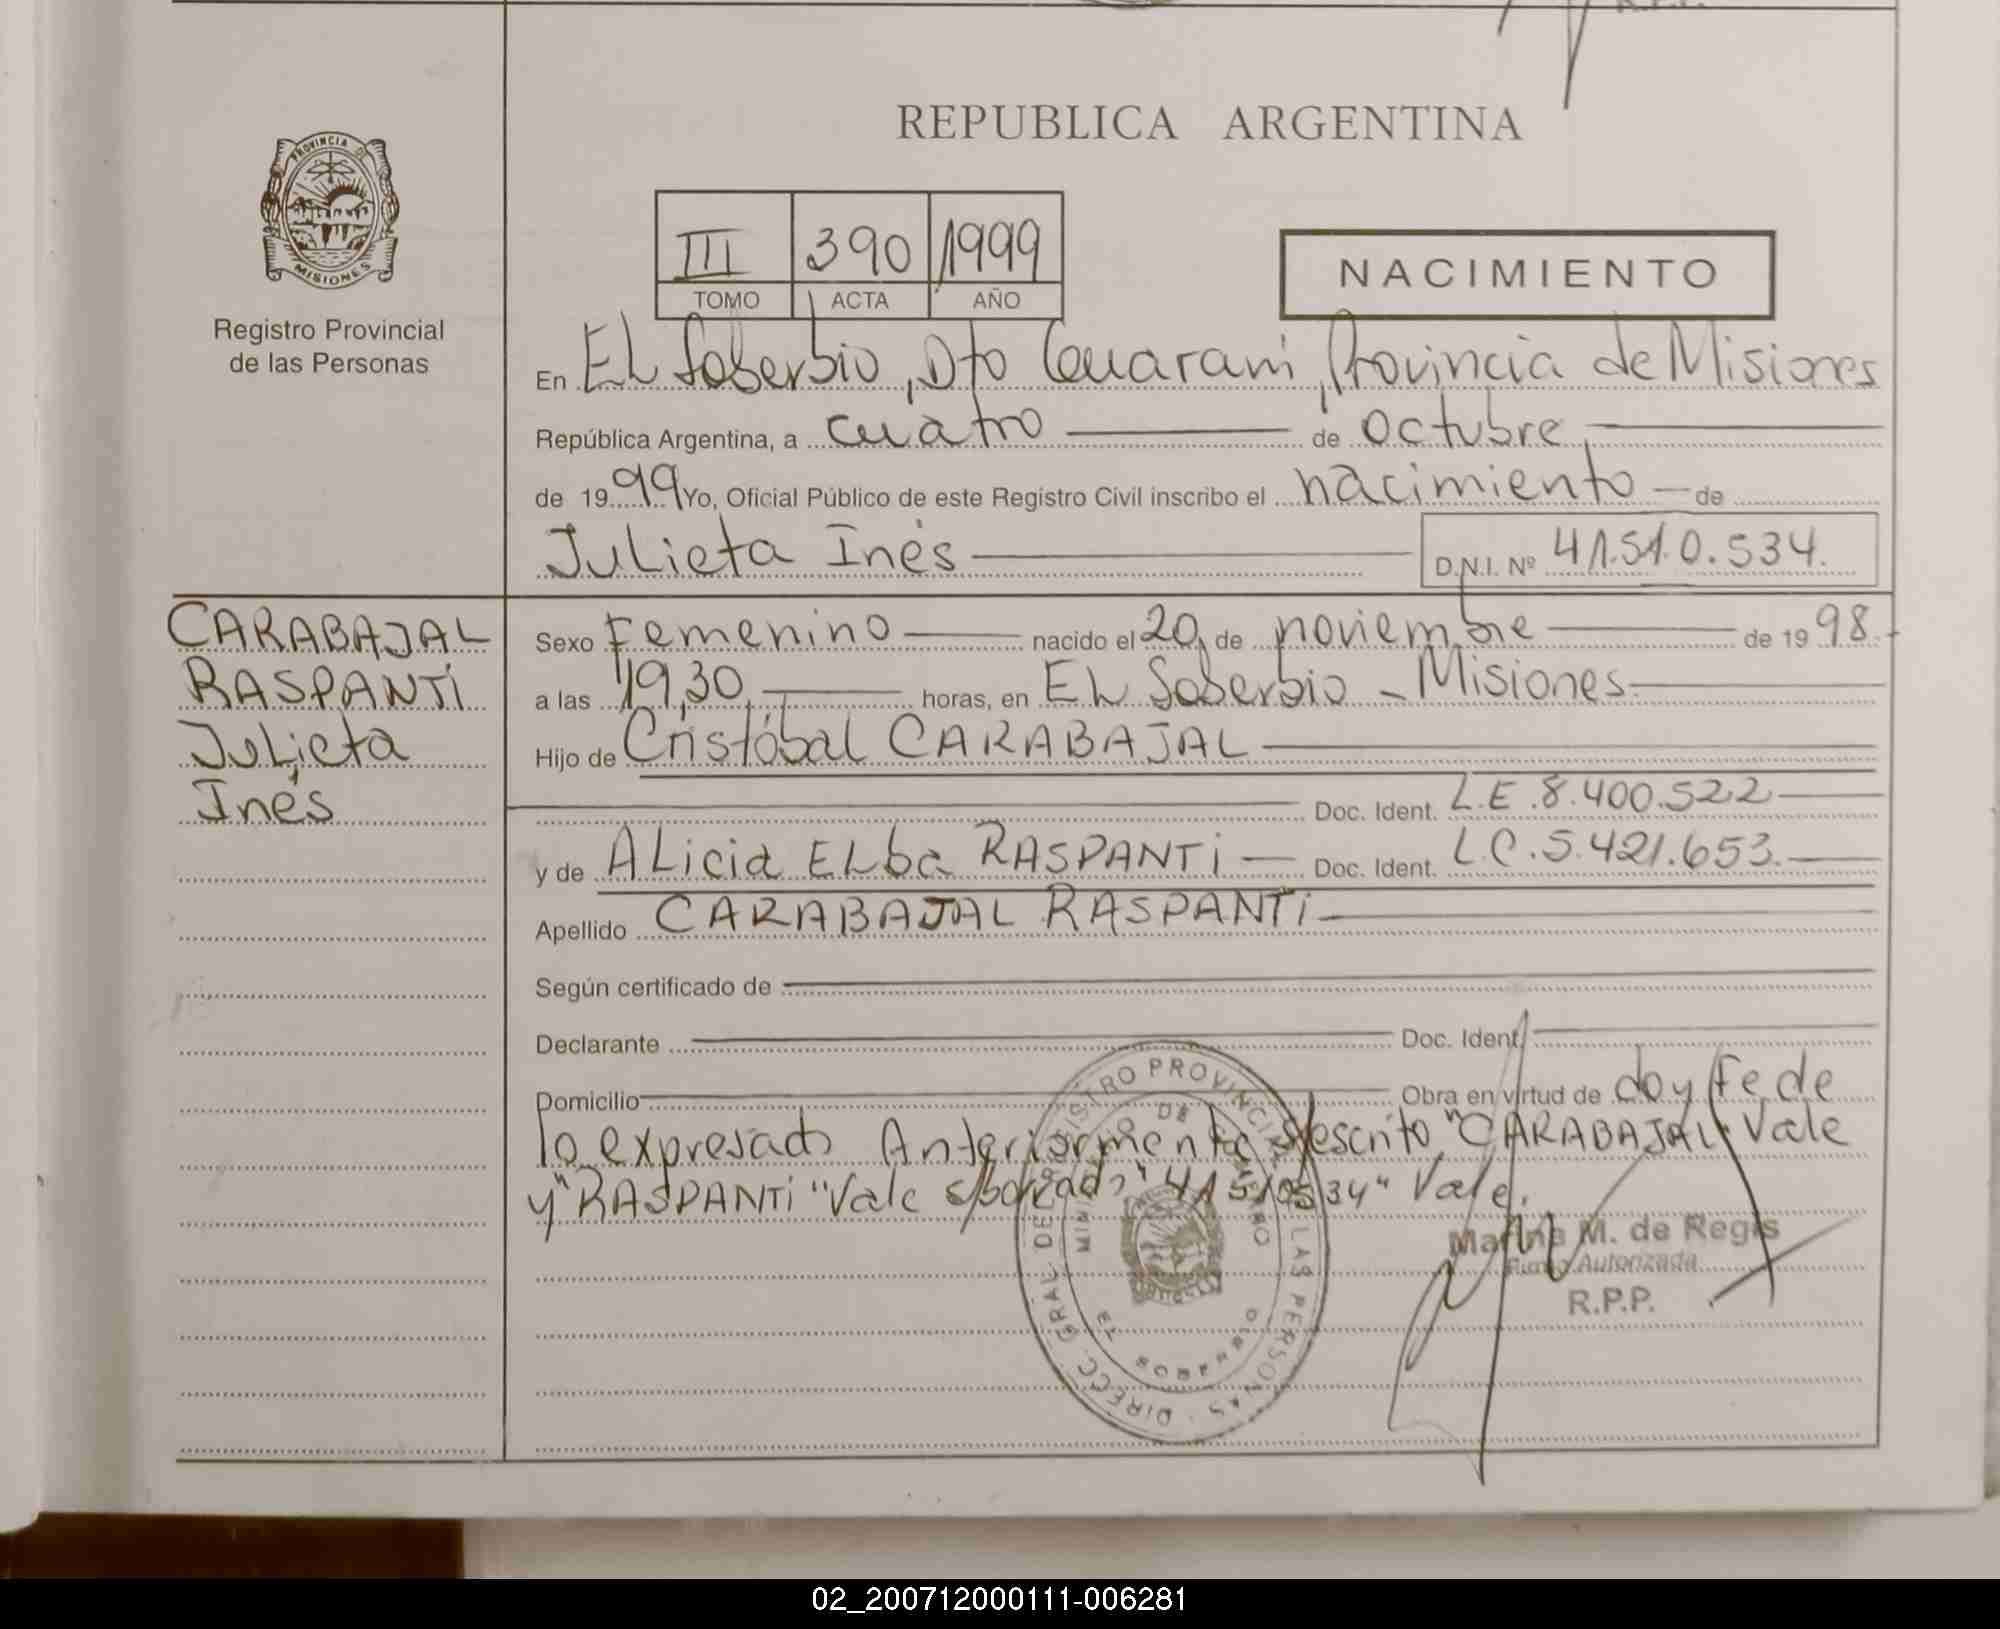 REPUBLICA ARGENTINA
PROVINCIA DE
MISIONES
Registro Provincial
de las Personas
III 390 1999
TOMO ACTA AÑO
NACIMIENTO
En EL Soberbio, Dto Guaraní, Provincia de Misiones
República Argentina, a cuatro de octubre
de 1999 Yo, Oficial Público de este Registro Civil inscribo el nacimiento de
Julieta Inés D.N.I. Nº 41.510.534.
CARABAJAL
RASPANTI
Julieta
Inés
Sexo Femenino nacido el 20, de noviembre de 1998.
a las 19,30 horas, en EL Soberbio - Misiones
Hijo de Cristóbal CARABAJAL
Doc. Ident. L.E. 8.400.522
y de ALicia ELba RASPANTI Doc. Ident. L.C. 5.421.653.
Apellido CARABAJAL RASPANTI
Según certificado de
Declarante Doc. Ident.
Domicilio Obra en virtud de doy Fe de
lo expresado Anteriormente s/escrito "CARABAJAL" Vale
y "RASPANTI" Vale s/borrado "41510534" Vale.
DIRECC. GRAL. DEL REGISTRO PROVINCIAL DE LAS PERSONAS
MINISTERIO DE GOBIERNO
EL SOBERBIO
Marina M. de Regis
Firma Autorizada
R.P.P.
02_200712000111-006281